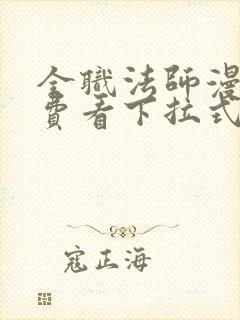 全職法師漫
費看下拉式
寇正海